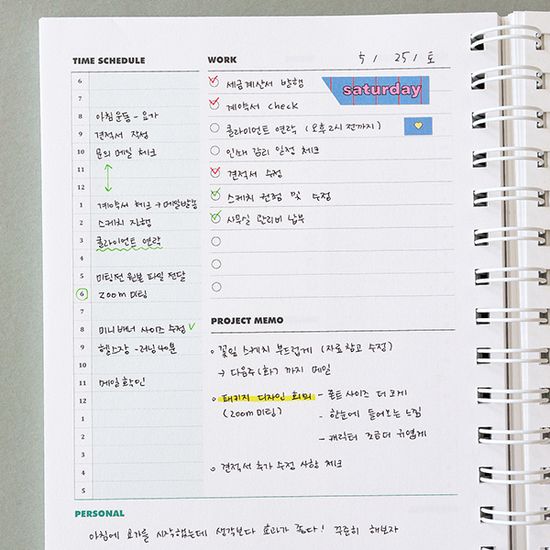 TIME SCHEDULE
6
7
8 아침운동 - 요가
9 견적서 작성
10 문의 메일 체크
11
12
1 계약서 체크 → 메일발송
2 스케치 진행
3 클라이언트 연락
4
5 미팅전 원본 파일 전달
6 zoom 미팅
7
8 미니 배너 사이즈 수정 ✓
9 헬스장 - 러닝 40분
10
11 메일확인
12
1
2
3
4
5
WORK
5 / 25 / 토
세금계산서 발행
saturday
계약서 check
클라이언트 연락 (오후 2시 전까지)
인쇄 감리 일정 체크
견적서 수정
스케치 컨펌 및 수정
사무실 관리비 납부
PROJECT MEMO
꽃잎 스케치 부드럽게 (자료참고 수정)
→ 다음주 (화) 까지 메일
패키지 디자인 회의 - 폰트 사이즈 더 크게
(zoom 미팅) - 한눈에 들어오는 느낌
- 캐릭터 조금더 귀엽게
견적서 추가 수정 사항 체크
PERSONAL
아침에 요가를 시작했는데 생각보다 효과가 좋다! 꾸준히 해보자